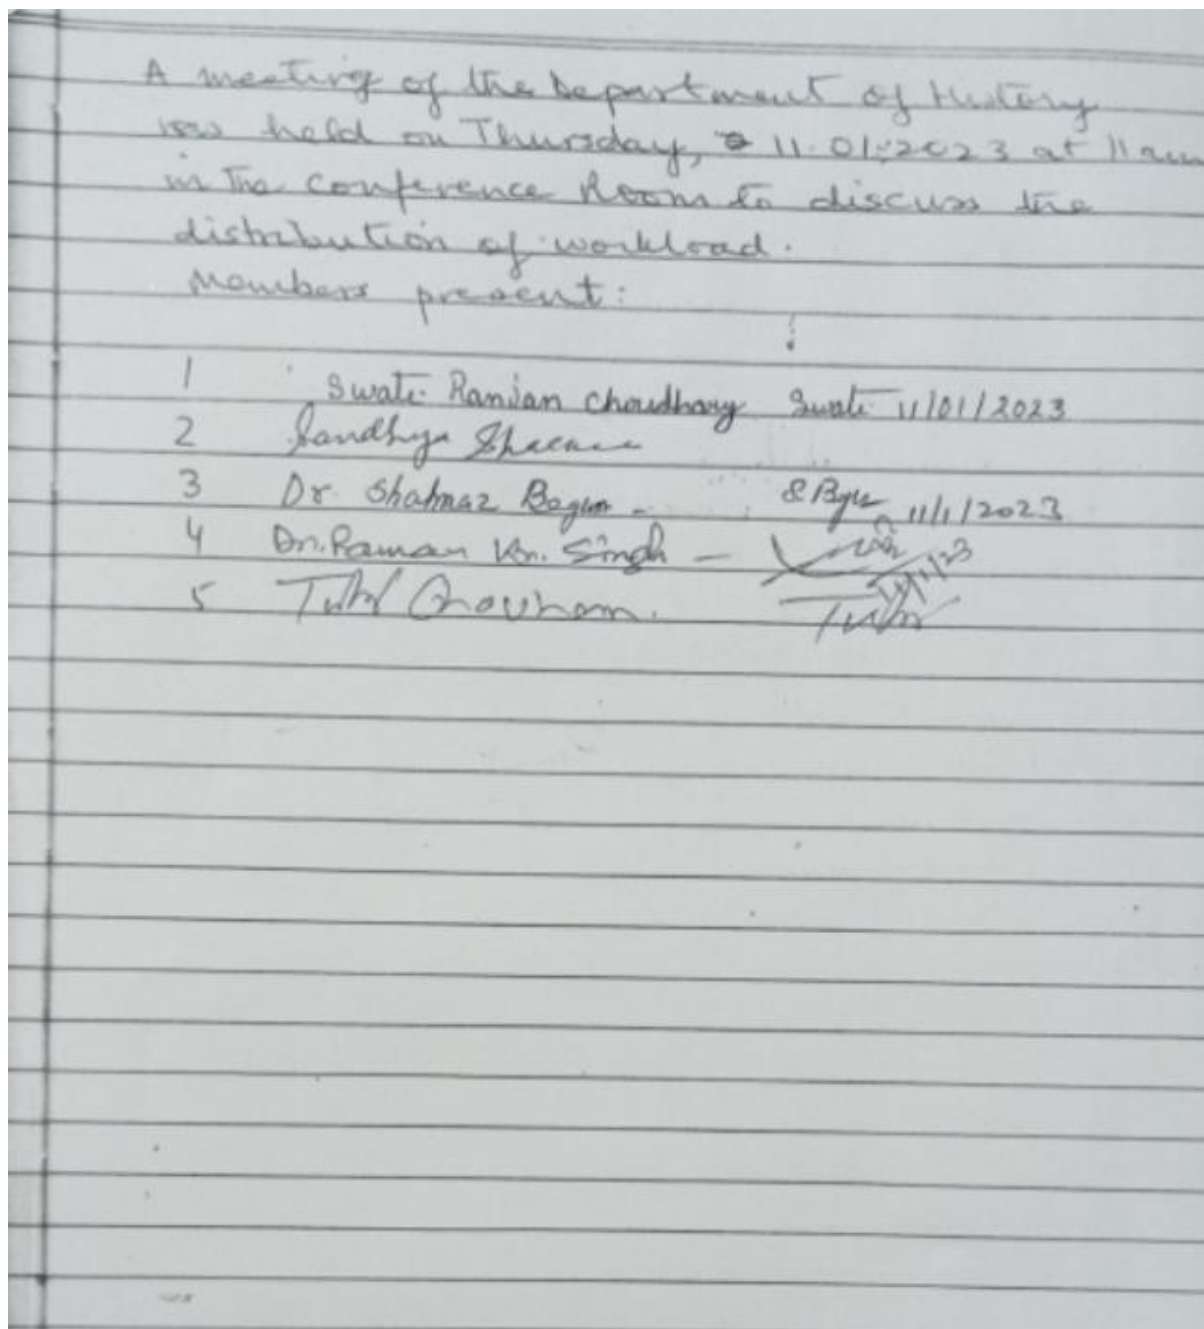 A meeting of the Department of History
was held on Thursday, 11.01.2023 at 11 am
in the Conference Room to discuss the
distribution of workload.
Members present:
1 Swati Ranjan Choudhary Swati 11/01/2023
2 Sandhya Sharma
3 Dr. Shahnaz Begum - 11/1/2023
4 Dr. Raman Kr. Singh - 11/1/23
5 Chouhan.